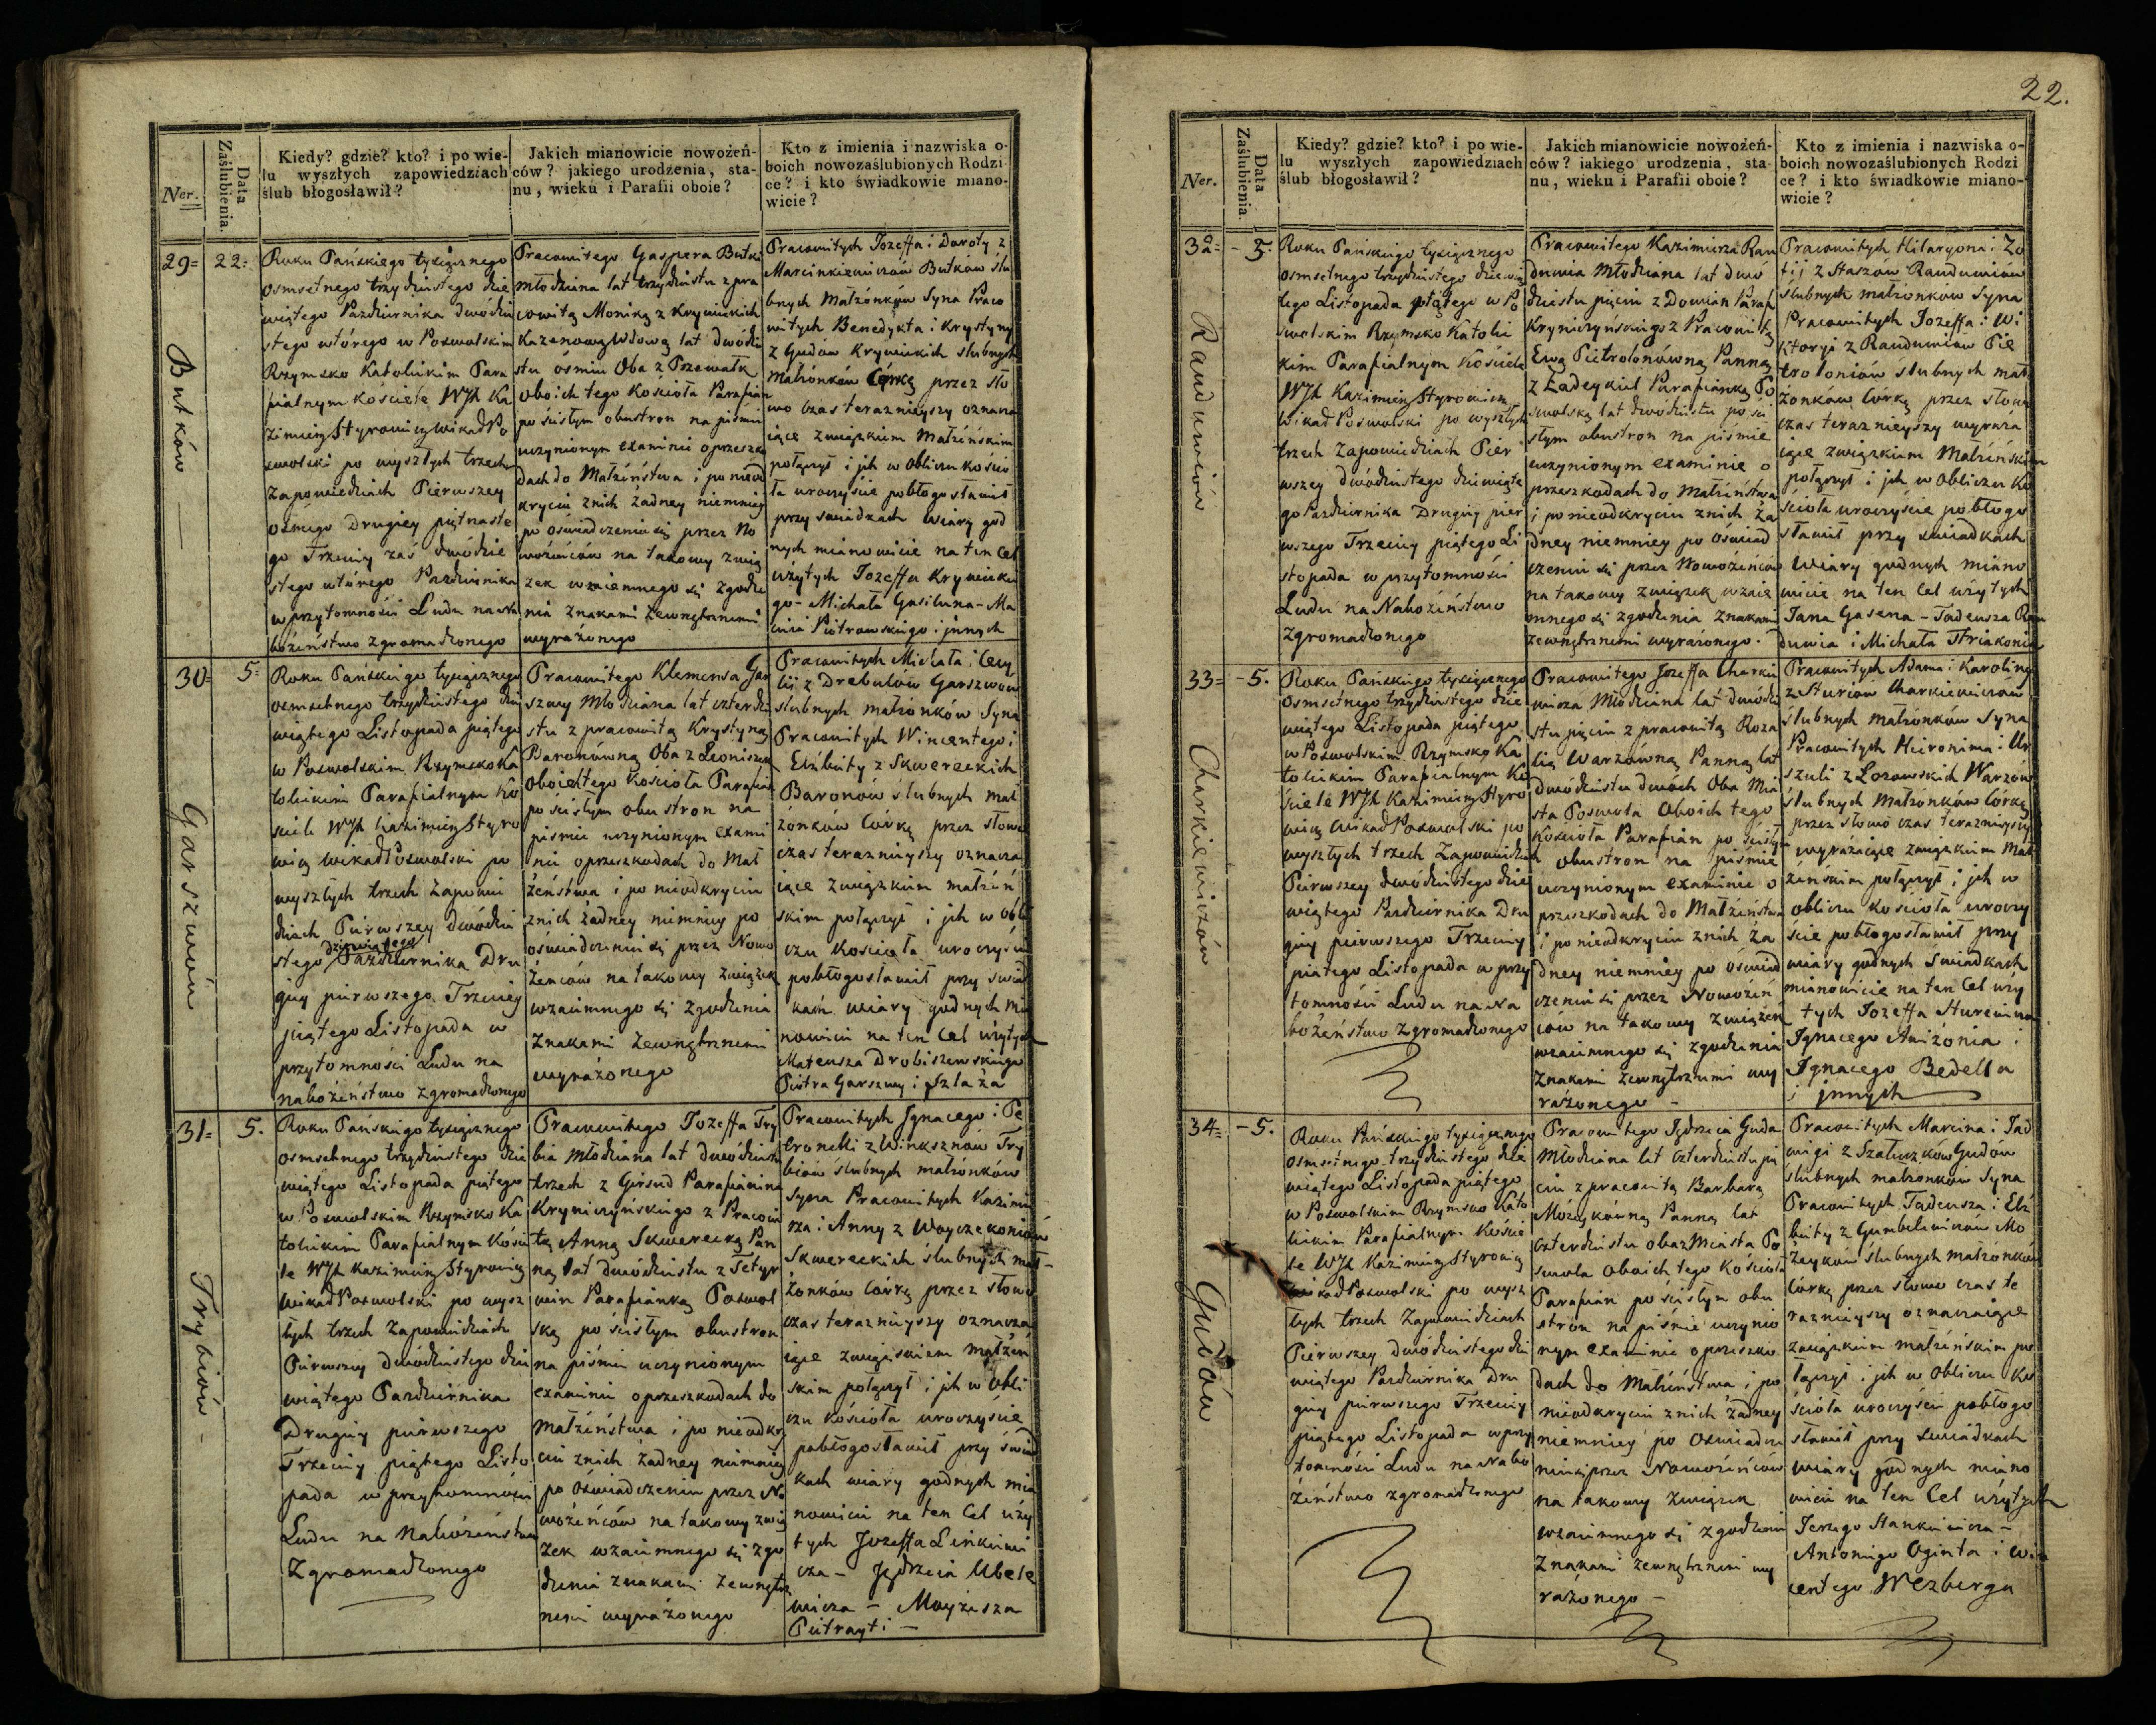 Ner.
Data
Zaślubienia.
Kiedy? gdzie? kto? i po wie-
lu wyszłych zapowiedziach
ślub błogosławił?
Jakich mianowicie nowożeń-
ców? jakiego urodzenia, sta-
nu, wieku i Parafii oboie?
Kto z imienia i nazwiska o-
boich nowozaślubionych Rodzi
ce? i kto świadkowie miano-
wicie?
29=
22=
Butków
Roku Pańskiego tysiącznego
osmsetnego trzydziestego dzie
wiątego Pazdziernika dwódzie
stego wtórego w Poswolskim
Rzymsko Katolickim Para
fialnym kościele WJX Ka
zimierz Styrowicz wikad Po
swolski po wyszłych trzech
zapowiedziach Pierwszey
osmego Drugiey piętnaste
go Trzeciey zaś dwódzie
stego wtórego Pazdziernika
w przytomności Ludu na na
bożeństwo zgromadzonego
Pracowitego Gaspera Butki
młodziana lat trzydziestu z pra
cowitą Moniką z Krywickich
Kazenową Wdową lat dwódzie
stu ósmiu Oba z Przewałk
oboich tego Kościoła Parafian
po ścisłym obustron na pismie
uczynionym examinie oprzeszko
dach do Małżeństwa i po nieod
kryciu znich żadney niemniey
po oświadczeniu się przez No
wożeńców na takowy zwią
zek wzaiemnego się zgodze
nia znakami zewnętrznemi
wyrażonego
Pracowitych Jozeffa i Doroty z
Marcinkiewiczów Butków ślu
bnych Małżonków Syna Praco
witych Benedykta i Krystyny
z Gudów Krywickich slubnych
Małżonków Córkę przez sło
wo czas teraznieyszy oznacza
iące związkiem Małżeńskim
połączył i jch w Obliczu kościo
ła uroczyście pobłogosławił
przy swiadkach wiary god
nych mianowicie na ten Cel
użytych Jozeffa Krywicke
go - Michała Gasiluna - Ma
cieia Piotrowskiego i jnnych
30=
5=
Garszwów
Roku Pańskiego tysiącznego
osmsetnego trzydziestego dzie
wiątego Listopada piątego
w Poswolskim Rzymsko Ka
tolickim Parafialnym Ko
sciele WJX Kazimierz Styro
wicz wikad Poswolski po
wyszłych trzech zapowie
dziach Pierwszey dwódzie
dziewiątego
stego Pazdziernika Dru
giey pierwszego Trzeciey
piątego Listopada w
przytomności Ludu na
nabożeństwo zgromadzonego
Pracowitego Klemensa Gar
szwy Młodziana lat czterdzie
stu z pracowitą Krystyną
Baronówną Oba z Leoniszek
oboich tego kościoła Parafian
po ścisłym obu stron na
piśmie uczynionym exami
nie oprzeszkodach do Mał
żeństwa i po nieodkryciu
znich żadney niemniey po
oświadczeniu się przez Nowo
żeńców na takowy związek
wzaiemnego się zgodzenia
znakami zewnętrznemi
wyrażonego
Pracowitych Michała i Cecy
lii z Drebulow Garszwów
slubnych małżonków Syna
Pracowitych Wincentego i
Elżbiety z Skwereckich
Baronów ślubnych mał
żonków Córkę przez słowo
czas teraznieyszy oznacza
iące związkiem małżeń
skim połączył i jch w obli
czu Kościoła uroczyście
pobłogosławił przy swiad
kach wiary godnych mia
nowicie na ten Cel użytych
Mateusza Drobiszewskiego
Piotra Garszwy i Szlaża
31=
5.
Trybiów
Roku Pańskiego tysiącznego
osmsetnego trzydziestego dzie
wiątego Listopada piątego
w Poswolskim Rzymsko Ka
tolickim Parafialnym Koście
le WJX Kazimierz Styrowicz
Wikad Poswolski po wysz
łych trzech Zapowiedziach
Pierwszey dwódziestego dzie
wiątego Pazdziernika
Drugiey pierwszego
Trzeciey piątego Listo
pada w przytomności
Ludu na Nabożeństwo
Zgromadzonego
Pracowitego Jozeffa Try
bia Młodziana lat dwódziestu
trzech z Girsud Parafianina
Kryniczyńskiego z Pracowi
tą Anną Skwerecką Pan
ną lat dwódziestu z Tetyr
win Parafianką Poswol
ską po ścisłym obustron
na piśmie uczynionym
examinie oprzeszkodach do
małżeństwa i po nieodkry
ciu znich żadney niemniey
po oświadczeniu przez No
wożeńców na takowy zwią
zek wzaiemnego się zgo
dzenia znakami zewnętrz
nemi wyrażonego
Pracowitych Jgnacego i Pe
tronelli z Winksznów Try
biów slubnych małżonków
syna Pracowitych Kazimie
rza i Anny z Woyczekoniów
Skwereckich slubnych mał-
żonków Córkę przez słowo
czas teraznieyszy oznacza
iące związkiem małżeń
skim połączył i jch w obli
czu kościoła uroczyscie
pobłogosławił przy świad
kach wiary godnych mia
nowicie na ten Cel uży
tych Jozeffa Linkiewi
cza - Jędrzeia Ubele
wicza - Moyżesza
Pietrayti -
22.
Ner.
Data
Zaślubienia.
Kiedy? gdzie? kto? i po wie-
lu wyszłych zapowiedziach
ślub błogosławił?
Jakich mianowicie nowożeń-
ców? iakiego urodzenia, sta-
nu, wieku i Parafii oboie?
Kto z imienia i nazwiska o-
boich nowozaślubionych Rodzi
ce? i kto świadkowie miano-
wicie?
32=
- 5.
Rauduwiów
Roku Pańskiego tysiącznego
osmsetnego trzydziestego dziewią
tego Listopada piątego w Po
swolskim Rzymsko Katolic
kim Parafialnym Kościele
WJX Kazimierz Styrowicz
Wikad Poswolski po wyszłych
trzech Zapowiedziach Pier
wszey dwódziestego dziewiąte
go Pazdziernika Drugiey pier
wszego Trzeciey piątego Li
stopada w przytomności
Ludu na Nabożeństwo
Zgromadzonego
Pracowitego Kazimierza Rau
duwia Młodziana lat dwó
dziestu pięciu z Dowian Paraf
Kryniczyńskiego z Pracowitą
Ewą Pietrolonówną Panną
z Ładeykiel Parafianką Po
swolską lat dwódziestu po ści
słym obustron na piśmie
uczynionym examinie o
przeszkodach do Małżeństwa
i po nieodkryciu znich ża
dney niemniey po oświad
czeniu się przez Nowożeńców
na takowy związek wzaie
mnego się zgodzenia znakami
zewnętrznemi wyrażonego.
Pracowitych Hilaryona i Zo
fij z Staszów Rauduwiów
ślubnych małżonków Syna
Pracowitych Jozeffa i Wi
ktoryi z Rauduwiow Pie
troloniów slubnych mał
żonków Córkę przez słowo
czas teraznieyszy wyraża
iące związkiem Małżeńskim
połączył i jch w Obliczu Ko
ścioła uroczyście pobłogo
sławił przy swiadkach
Wiary godnych miano
wicie na ten Cel użytych
Jana Gasena - Tadeusza Rau
duwia i Michała Striakonia
33=
- 5.
Charkiewiczów
Roku Pańskiego tysiącznego
osmsetnego trzydziestego dzie
wiątego Listopada piątego
w Poswolskim Rzymsko Ka
tolickim Parafialnym Ko
ściele WJX Kazimierz Styro
wicz wikad Poswolski po
wyszłych trzech Zapowiedziach
Pierwszey dwódziestego dzie
wiątego Pazdziernika Dru
giey pierwszego Trzeciey
piątego Listopada w przy
tomności Ludu na Na
bożeństwo zgromadzonego
Pracowitego Jozeffa Charkie
wicza Młodziana lat dwódzie
stu pięciu z pracowitą Roza
lią Warzówną Panną lat
dwódziestu dwóch Oba Mia
sta Poswola Oboich tego
Kościoła Parafian po ścisłym
obustron na piśmie
uczynionym examinie o
przeszkodach do Małżeństwa
i po nieodkryciu znich ża
dney niemniey po oświad
czeniu się przez Nowożeń
ców na takowy związek
wzaiemnego się zgodzenia
Znakami zewnętrznemi wy
rażonego -
Pracowitych Adama i Karoliny
z Sturiów Charkiewiczów
slubnych małżonków syna
Pracowitych Hieronima i Ur
szuli z Lozowskich Warzów
ślubnych Małżonków Córkę
przez słowo czas teraznieyszy
wyrażaiące związkiem Mał
żeńskim połączył i jch w
obliczu kościoła uroczy
scie pobłogosławił przy
wiary godnych swiadkach
mianowicie na ten Cel uży
tych Jozeffa Sturewicza
Jgnacego Aniżonia i
Jgnacego Bedella
i jnnych
34=
- 5.
Gudów
Roku Pańskiego tysiącznego
osmsetnego trzydziestego dzie
wiątego Listopada piątego
w Poswolskim Rzymsko Kato
lickim Parafialnym Koście
le WJX Kazimierz Styrowicz
wikad Poswolski po wysz
łych trzech Zapowiedziach
Pierwszey dwódziestego dzie
wiątego Pazdziernika Dru
giey pierwszego Trzeciey
piątego Listopada w przy
tomności Ludu na Nabo
żeństwo zgromadzonego
Pracowitego Jędrzeia Guda
Młodziana lat czterdziestu pię
ciu z pracowitą Barbarą
Możeykówną Panną lat
czterdziestu oba z Miasta Po
swola oboich tego Kościoła
Parafian po ścisłym obu
stron na piśmie uczynio
nym examinie oprzeszko
dach do Małżeństwa i po
nieodkryciu znich żadney
niemniey po oświadcze
niu się przez Nowożeńców
na takowy związek
wzaiemnego się zgodzenia
Znakami zewnętrznemi wy
rażonego -
Pracowitych Marcina i Jad
wigi z Szałuzków Gudów
ślubnych małżonków Syna
Pracowitych Tadeusza i Elż
biety z Gumbelewiczów Mo
żeyków ślubnych małżonków
Córkę przez słowo czas te
raznieyszy oznaczaiące
związkiem małżeńskim po
łączył i jch w Obliczu Ko
ścioła uroczyście pobłogo
sławił przy swiadkach
wiary godnych miano
wicie na ten Cel użytych
Jerzego Stankiewicza -
Antoniego Oginta i Win
centego Wezberga